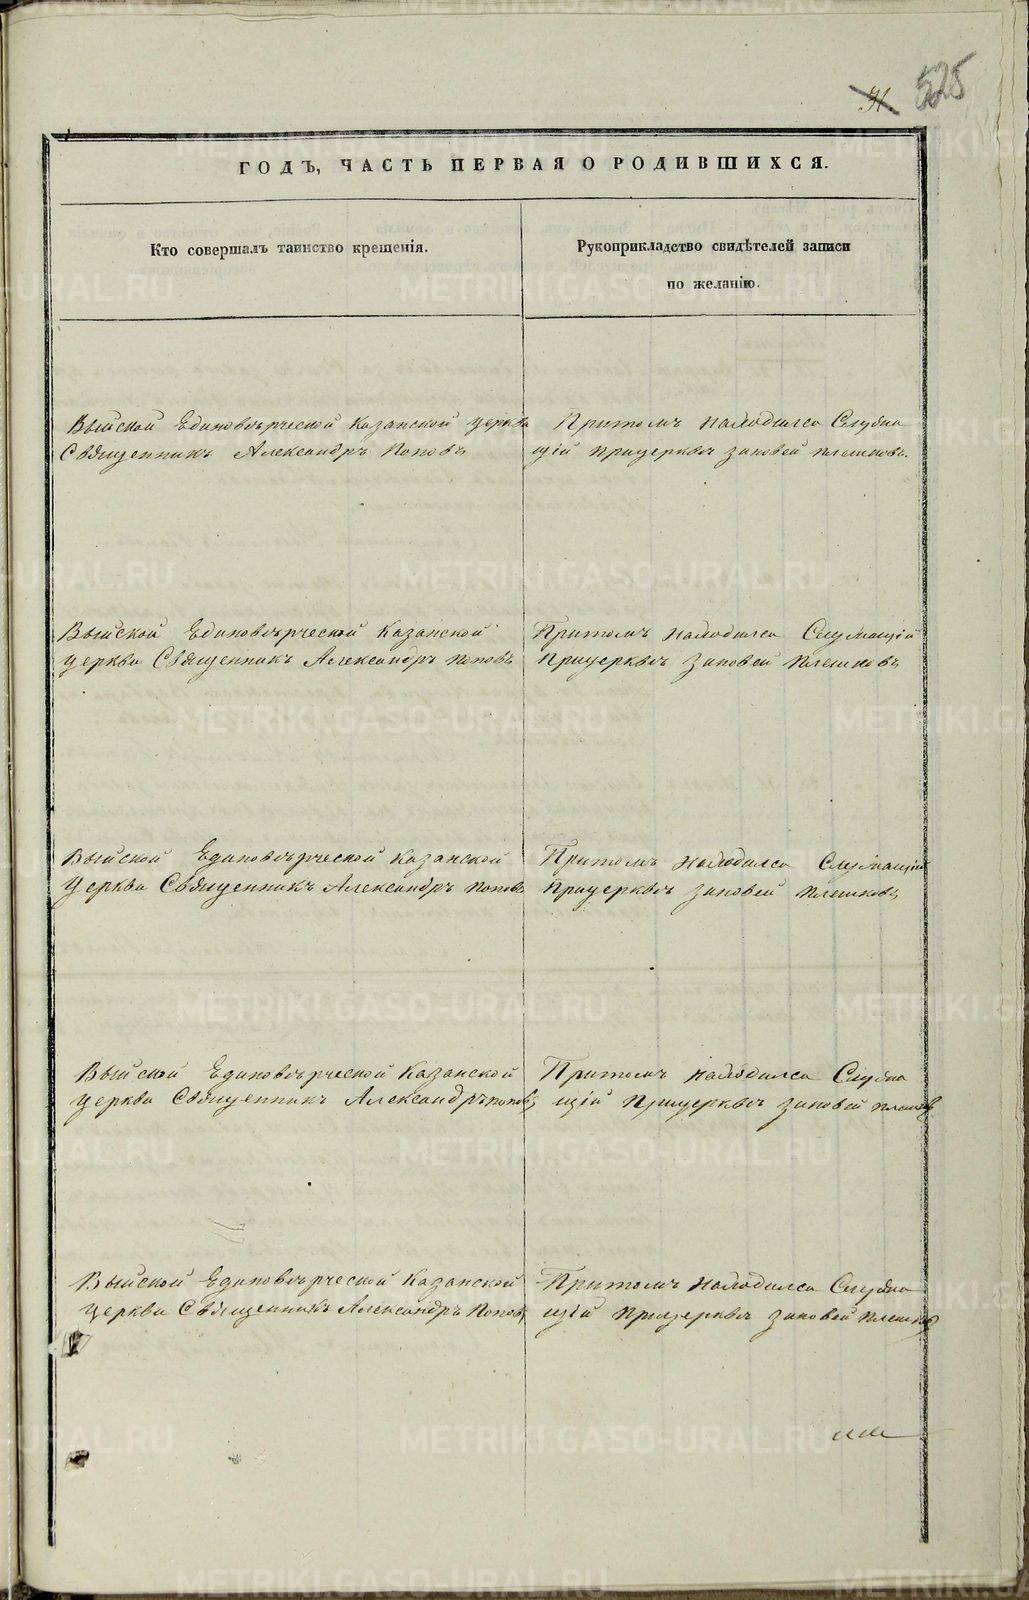 525
ГОДЪ, ЧАСТЬ ПЕРВАЯ О РОДИВШИХСЯ.
Кто совершалъ таинство крещенія.
Рукоприкладство свидѣтелей записи
по желанію.
Выйской Единовѣрческой Казанской церкви
Священникъ Александръ Поповъ
Притомъ находился Служа
щій Прицерквѣ Зиновей Плешковъ.
Выйской Единовѣрческой Казанской
церкви Священникъ Александръ Поповъ
Притомъ находился Служащій
Прицерквѣ Зиновей Плешковъ
Выйской Единовѣрческой Казанской
Церкви Священникъ Александръ Поповъ
Притомъ находился Служащій
Прицерквѣ Зиновей Плешковъ
Выйской Единовѣрческой Казанской
Церкви Священникъ Александръ Поповъ
Притомъ находился Служа
щій Прицерквѣ Зиновей Плешковъ
Выйской Единовѣрческой Казанской
Церкви Священникъ Александръ Поповъ
Притомъ находился Служа
щій Прицерквѣ Зиновей Плешковъ
METRIKI.GASO-URAL.RU